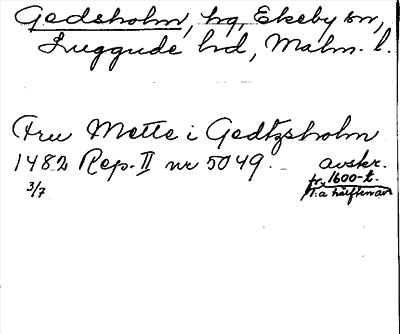 Gedsholm, hg, Ekeby sn,
Luggude hd, Malm. l.
Fru Mette i Gedtzsholm
1482 Rep. II nr 5049. avskr.
3/7 fr. 1600-t.
f:a hälften av